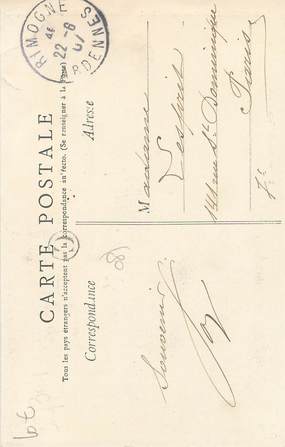 CARTE POSTALE
Tous les pays étrangers n'acceptent pas la correspondance au recto. (Se renseigner à la Poste)
Correspondance
Adresse
RIMOGNE
22 - 8
ARDENNES
Souvenir
Madame
rue St Dominique
Paris